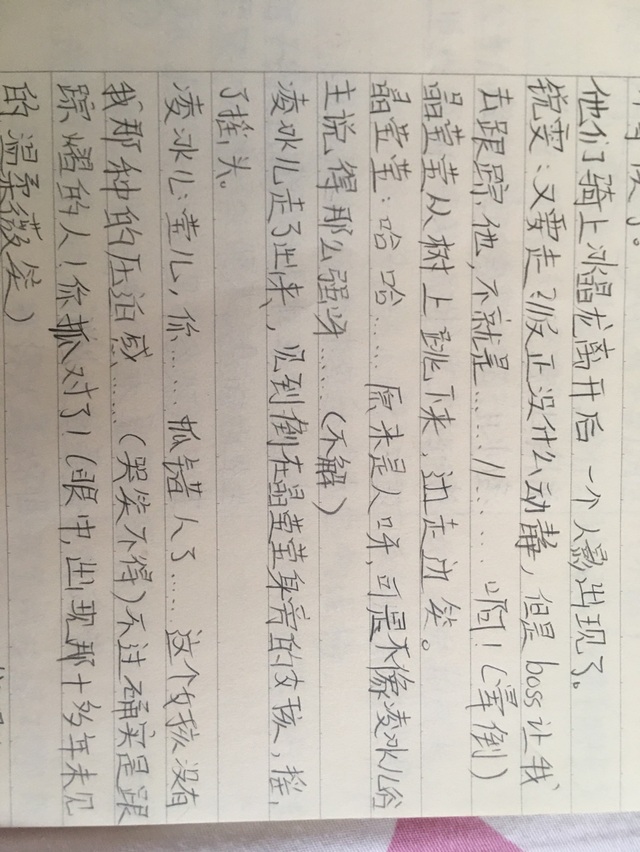 了。
他们骑上冰晶龙离开后，一个人影出现了。
锐雯：又要走？！反正没什么动静，但是boss让我
去跟踪他，不就是……//……啊！（晕倒）
晶莹莹从树上跳下来，边走边笑。
晶莹莹：哈哈……原来是人呀，可是不像凌冰儿公
主说得那么强呀……（不解）
凌冰儿走了出来，见到倒在晶莹莹身旁的女孩，摇
了摇头。
凌冰儿：莹儿，你……抓错人了……这个女孩没有
我那种的压迫感……（哭笑不得）不过确实是跟
踪熠的人！你抓对了！（眼中出现那十多年未见
的温柔微笑）